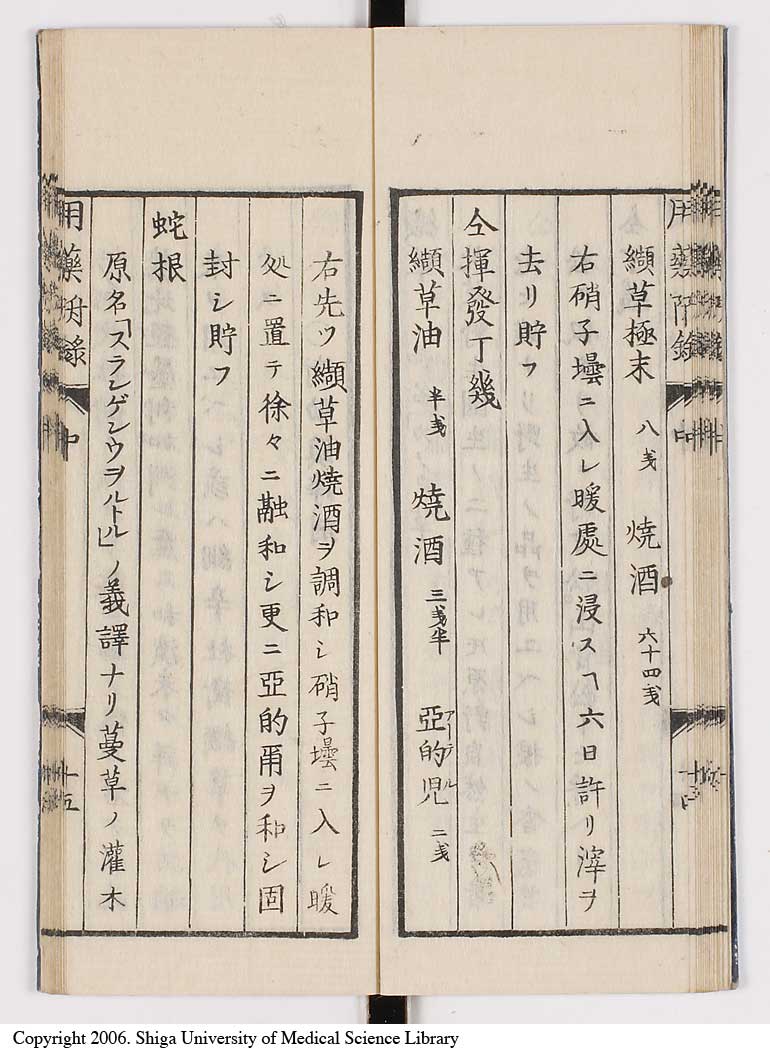 纈草極末 八戔 燒酒 六十四戔
右硝子壜ニ入レ暖處ニ浸スヿ六日許リ滓ヲ
去リ貯フ
仝揮發丁幾
纈草油 半戔 燒酒 三戔半 亞的児アーテル 二戔
右先ツ纈草油燒酒ヲ調和シ硝子壜ニ入レ暖
処ニ置テ徐々ニ融和シ更ニ亞的爾ヲ和シ固
封シ貯フ
蛇根
原名「スランゲンウヲルトル」ノ義譯ナリ蔓草ノ灌木
用藥附錄 中 十五
Copyright 2006. Shiga University of Medical Science Library